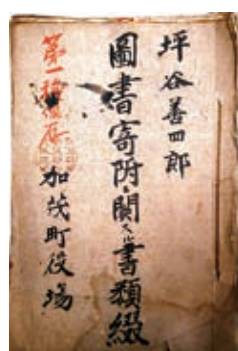 坪谷善四郎
圖書寄附ニ関スル書類綴
加茂町役場